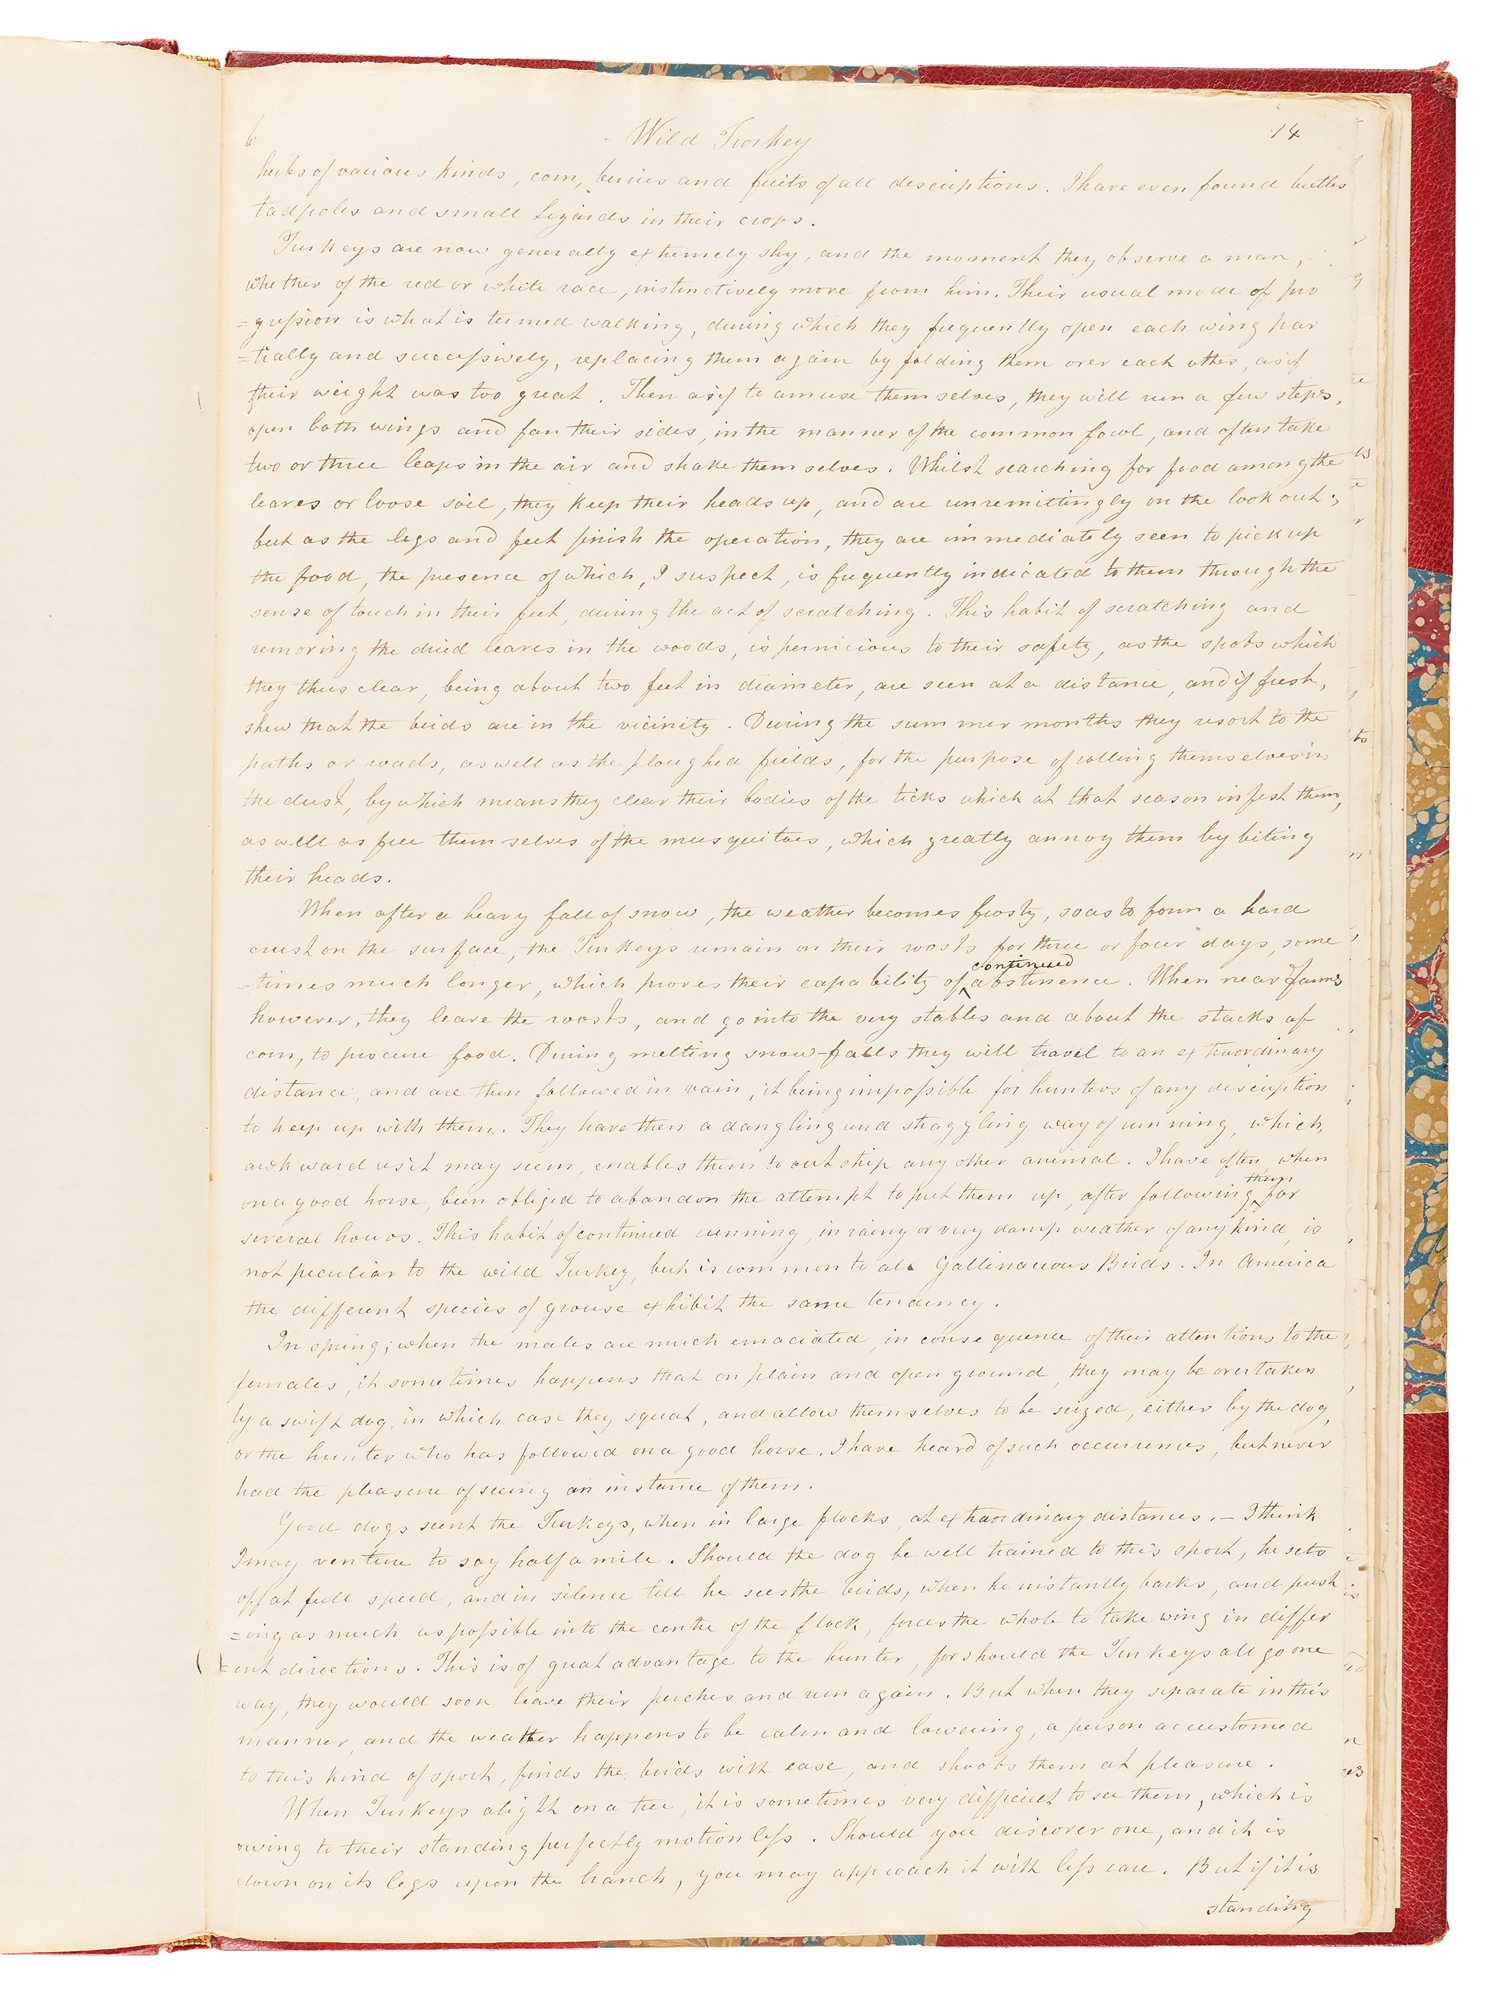 6 Wild Turkey 14
herbs of various kinds, corn, berries and fruits of all descriptions. I have even found beetles
tadpoles and small Lizards in their crops.
Turkeys are now generally extremely shy, and the moment they observe a man,
whether of the red or white race, instinctively move from him. Their usual mode of pro
=gression is what is termed walking, during which they frequently open each wing par
=tially and successively, replacing them again by folding them over each other, as if
their weight was too great. Then as if to amuse themselves, they will run a few steps,
open both wings and fan their sides, in the manner of the common fowl, and often take
two or three leaps in the air and shake themselves. Whilst searching for food among the
leaves or loose soil, they keep their heads up, and are unremittingly on the look out;
but as the legs and feet finish the operation, they are immediately seen to pick up
the food, the presence of which, I suspect, is frequently indicated to them through the
sense of touch in their feet, during the act of scratching. This habit of scratching and
removing the dried leaves in the woods, is pernicious to their safety, as the spots which
they thus clear, being about two feet in diameter, are seen at a distance, and if fresh,
shew that the birds are in the vicinity. During the summer months they resort to the
paths or roads, as well as the ploughed fields, for the purpose of rolling themselves in
the dust, by which means they clear their bodies of the ticks which at that season infest them,
as well as free themselves of the musquitoes, which greatly annoy them by biting
their heads.
When after a heavy fall of snow, the weather becomes frosty, so as to form a hard
crust on the surface, the Turkeys remain on their roosts for three or four days, some
=times much longer, which proves their capability of continued abstinence. When near farms
however, they leave the roosts, and go into the very stables and about the stacks of
corn, to procure food. During melting snow-falls they will travel to an extraordinary
distance, and are then followed in vain, it being impossible for hunters of any description
to keep up with them. They have then a dangling and straggling way of running, which,
awkward as it may seem, enables them to outstrip any other animal. I have often, when
on a good horse, been obliged to abandon the attempt to put them up, after following them for
several hours. This habit of continued running, in rainy or very damp weather of any kind, is
not peculiar to the wild Turkey, but is common to all Gallinaceous Birds. In America
the different species of grouse exhibit the same tendency.
In spring, when the males are much emaciated, in consequence of their attentions to the
females, it sometimes happens that on plain and open ground, they may be overtaken
by a swift dog, in which case they squat, and allow themselves to be seized, either by the dog,
or the hunter who has followed on a good horse. I have heard of such occurrences, but never
had the pleasure of seeing an instance of them.
Good dogs scent the Turkeys, when in large flocks, at extraordinary distances. — I think
I may venture to say half a mile. Should the dog be well trained to this sport, he sets
off at full speed, and in silence till he sees the birds, when he instantly barks, and push
=ing as much as possible into the centre of the flock, forces the whole to take wing in differ
=ent directions. This is of great advantage to the hunter, for should the Turkeys all go one
way, they would soon leave their perches and run again. But when they separate in this
manner, and the weather happens to be calm and lowering, a person accustomed
to this kind of sport, finds the birds with ease, and shoots them at pleasure.
When Turkeys alight on a tree, it is sometimes very difficult to see them, which is
owing to their standing perfectly motionless. Should you discover one, and it is
down on its legs upon the branch, you may approach it with less care. But if it is
standing